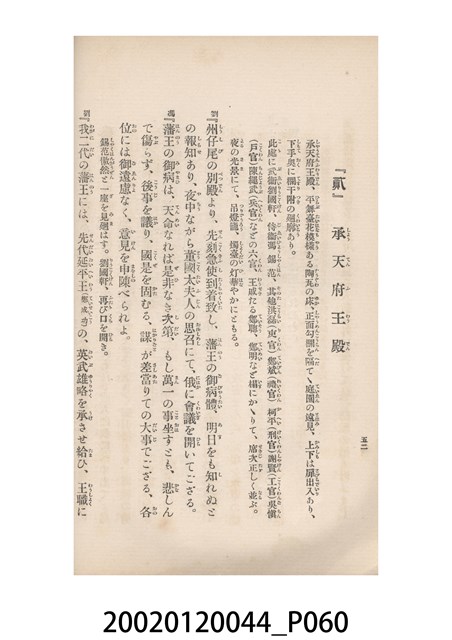 『貳』 承天府王殿
五二
承天府王殿、平舞臺花模樣ある陶瓦の床、正面勾欄を隔てゝ庭園の遠見、上下は扉出入あり、
下手奧に欄干附の廻廊あり。
此處に武衞劉國軒、侍衞馮錫范、其他洪磊(吏官)鄭斌(禮官)柯平(刑官)謝賢(工官)吳愼
(戶官)陳繩武(兵官)などの六官、王戚たる鄭聰、鄭明など榻にかゝりて、席次正しく並ぶ。
夜の光景にて、吊燈籠、燭臺の灯華やかにともる。
劉『州仔尾の別殿より、先刻急使到着致し、藩王の御病體、明日をも知れぬと
の報知あり、夜中ながら董國太夫人の思召にて、俄に會議を開いてござる。
馮『藩王の御病は、天命なれば是非なき次第、もし萬一の事坐すとも、悲しん
で傷らず、後事を議り、國是を固むる、謀が差當りての大事でござる、各
位には御遠慮なく、意見を申陳べられよ。
錫范傲然と一座を見廻はす。劉國軒、再び口を開き。
劉『我二代の藩王には、先代延平王(鄭成功)の、英武雄略を承させ給ひ、王職に
20020120044_P060